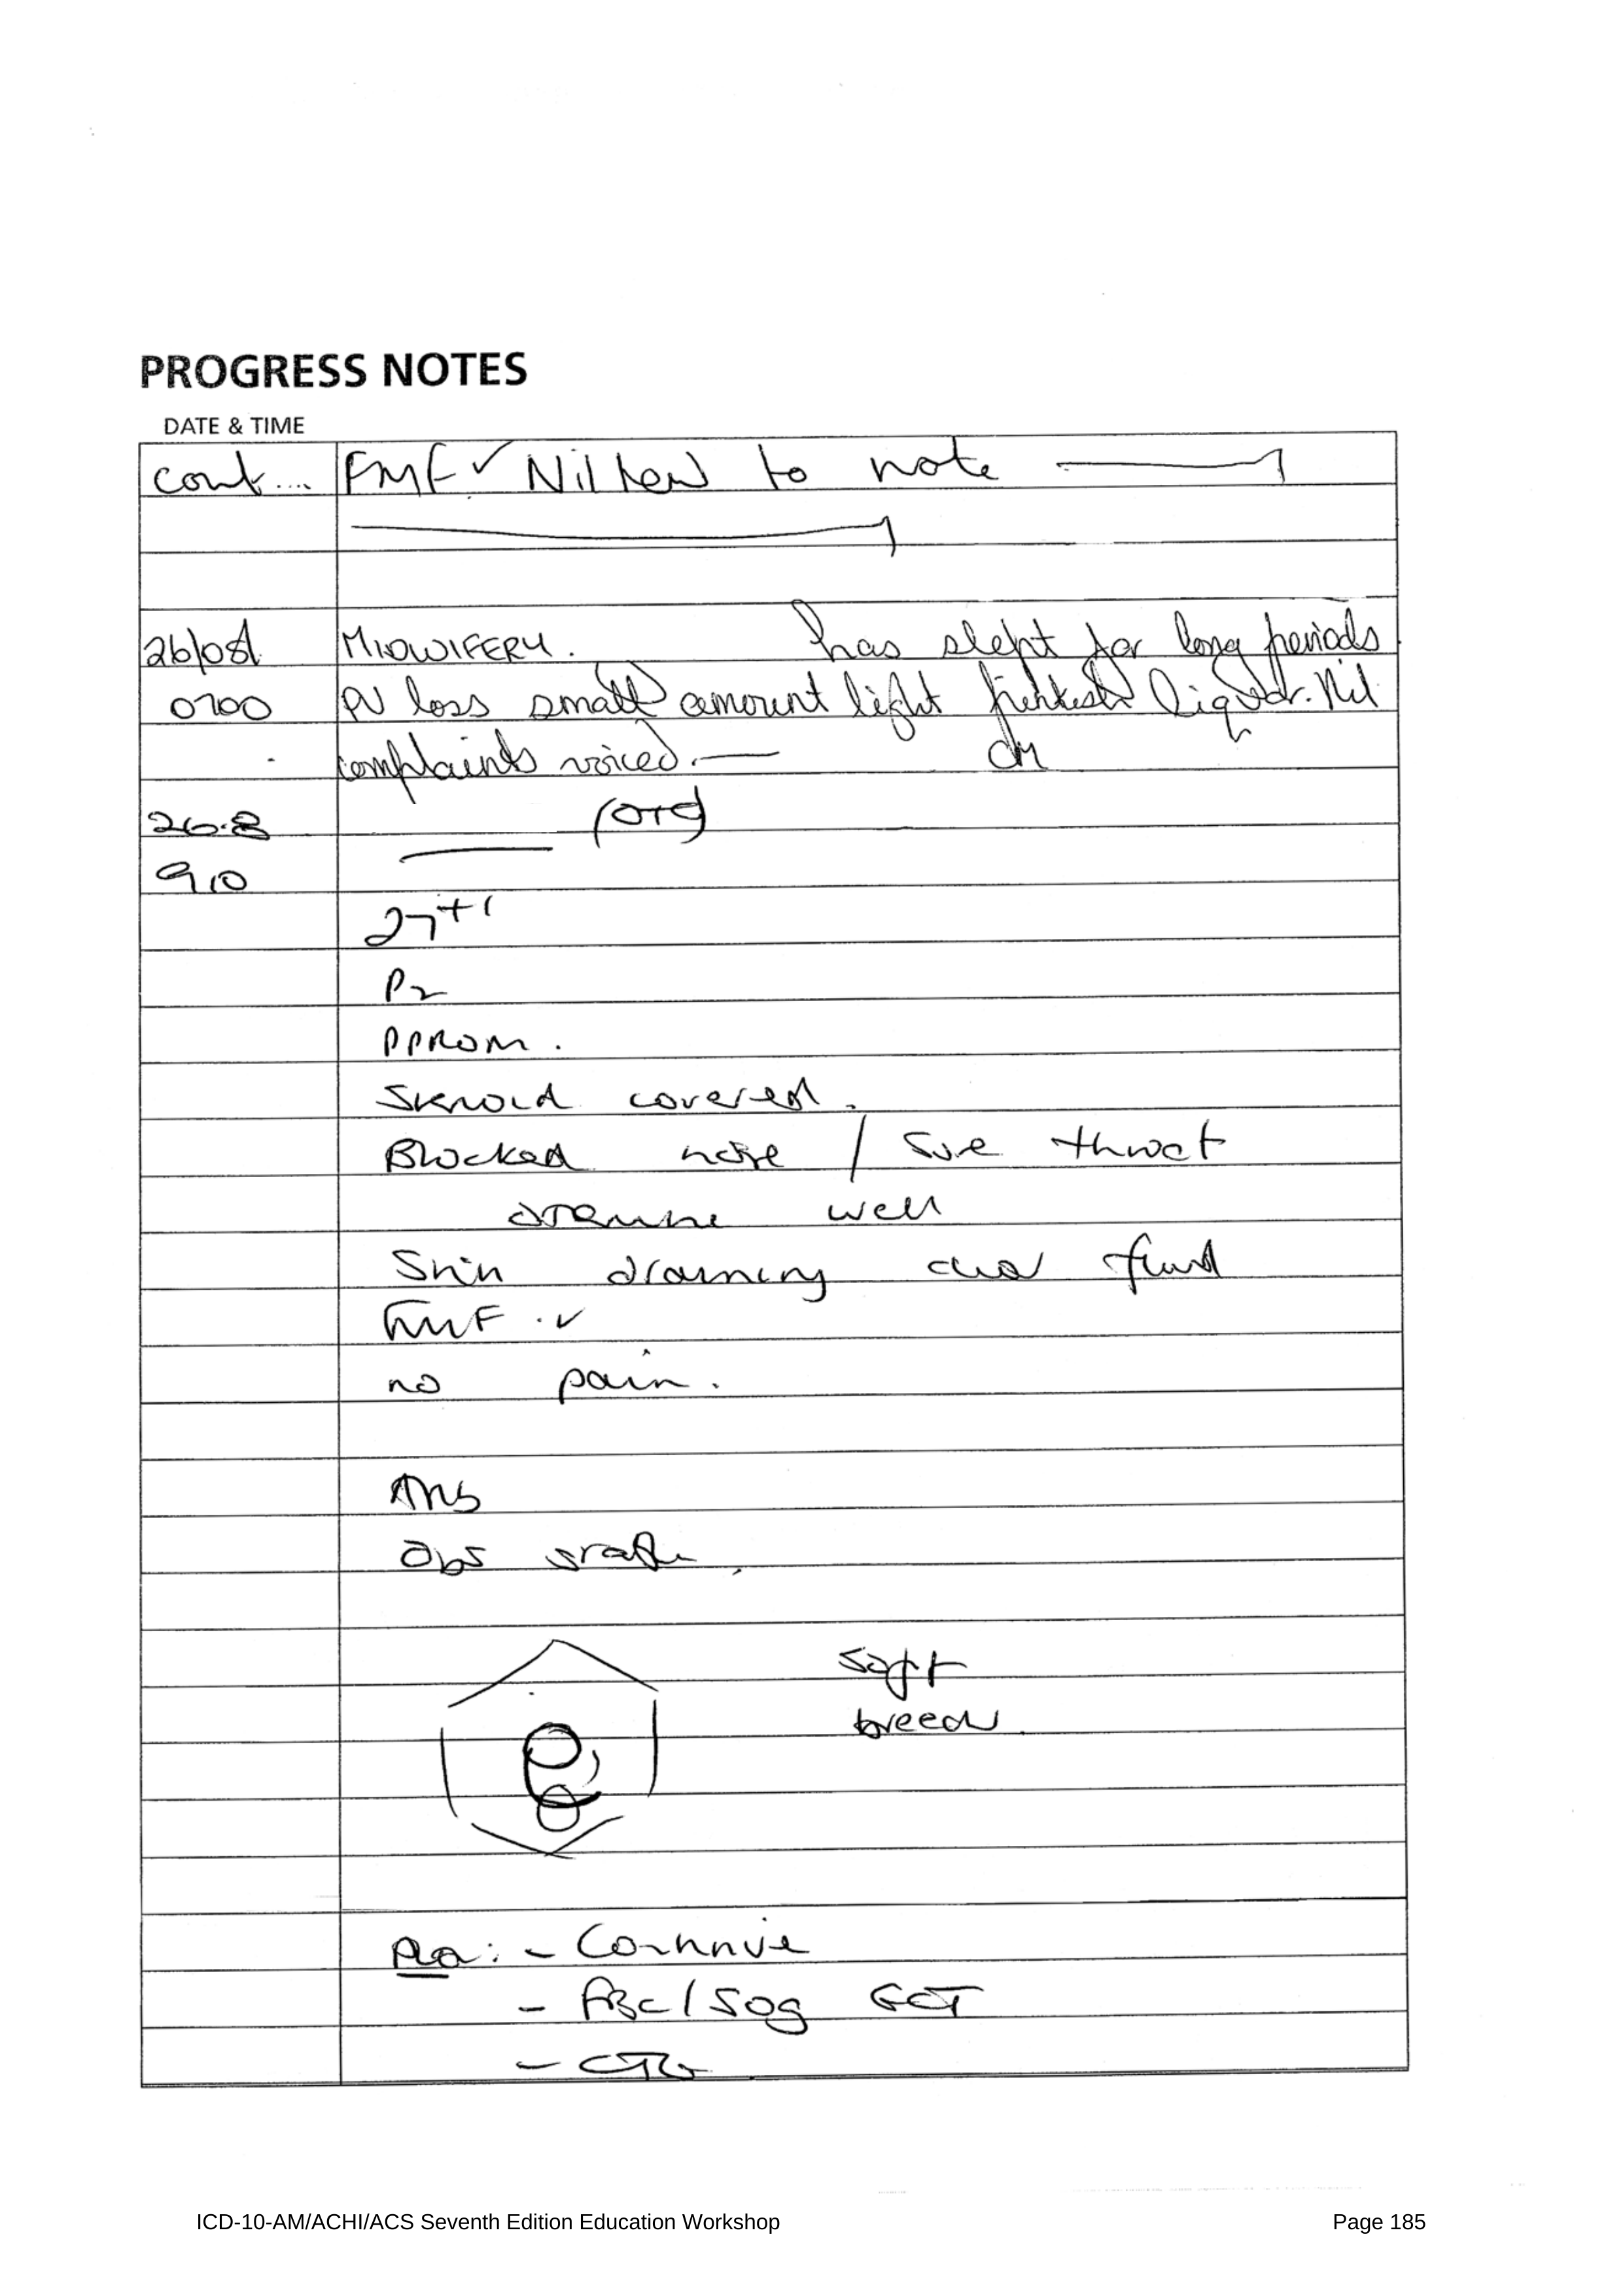 PROGRESS NOTES
DATE & TIME
cont.... FMF ✓ Nil new to note
26/08 MIDWIFERY. has slept for long periods
0700 PV loss small amount light pinkish liquor. Nil
complaints voiced.
26.8
910
27+1
P2
PPROM.
Steroid covered.
Blocked nose / sore throat
otherwise well
Still draining clear fluid
FMF ✓
no pain.
Obs stable
soft
breech
- Continue
- FBC / 50g GCT
- CTG
ICD-10-AM/ACHI/ACS Seventh Edition Education Workshop Page 185